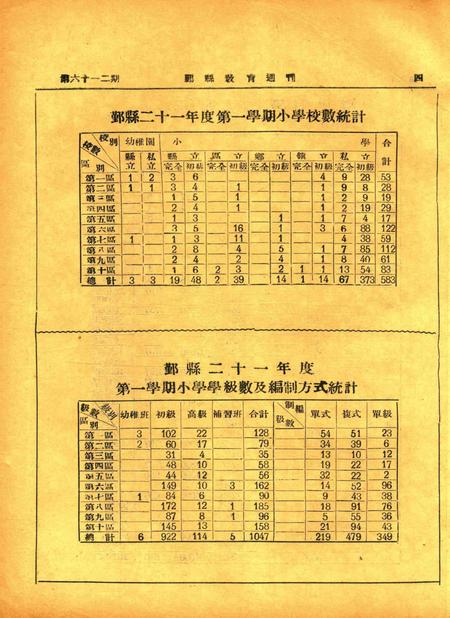 第六十一二期 鄞縣教育週刊 四
鄞縣二十一年度第一學期小學校數統計
級別 校數 區別 幼稚園 小 學 合計
縣立 私立 縣立 區立 鄉立 鎮立 私立
完全 初級 完全 初級 完全 初級 完全 初級 完全 初級
第一區 1 2 3 6 4 9 28 53
第二區 1 1 3 4 1 1 9 8 28
第三區 1 5 1 1 2 9 19
第四區 2 4 1 1 2 19 29
第五區 1 3 1 1 7 4 17
第六區 3 5 16 1 3 6 88 122
第七區 1 1 3 11 1 4 38 59
第八區 2 8 4 5 1 7 85 112
第九區 2 4 2 4 1 8 40 61
第十區 1 6 2 3 2 1 1 13 54 83
總計 3 3 19 48 2 39 14 1 14 67 373 583
鄞縣二十一年度
第一學期小學學級數及編制方式統計
級別 級數 區別 幼稚班 初級 高級 補習班 合計 編制 級數 單式 複式 單級
第一區 3 102 22 128 54 51 23
第二區 2 60 17 79 34 39 6
第三區 31 4 35 13 10 12
第四區 48 10 58 19 22 17
第五區 44 12 56 32 22 2
第六區 149 10 3 162 14 52 96
第七區 1 84 6 90 9 43 38
第八區 172 12 1 185 18 91 76
第九區 87 8 1 96 5 55 36
第十區 145 13 158 21 94 43
總計 6 922 114 5 1047 219 479 349